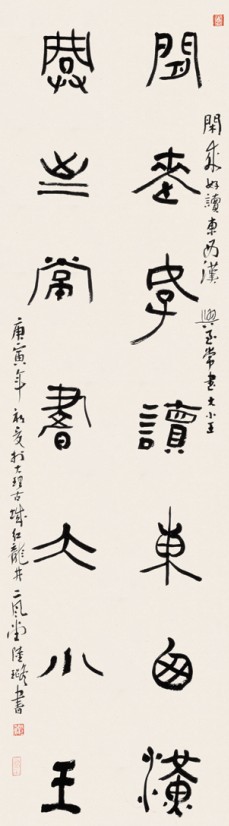 閒來好讀東西漢
閒來好讀東西漢 興至常書大小王
興至常書大小王
庚寅年初夏於大理古城紅龍井二風堂陸璐書